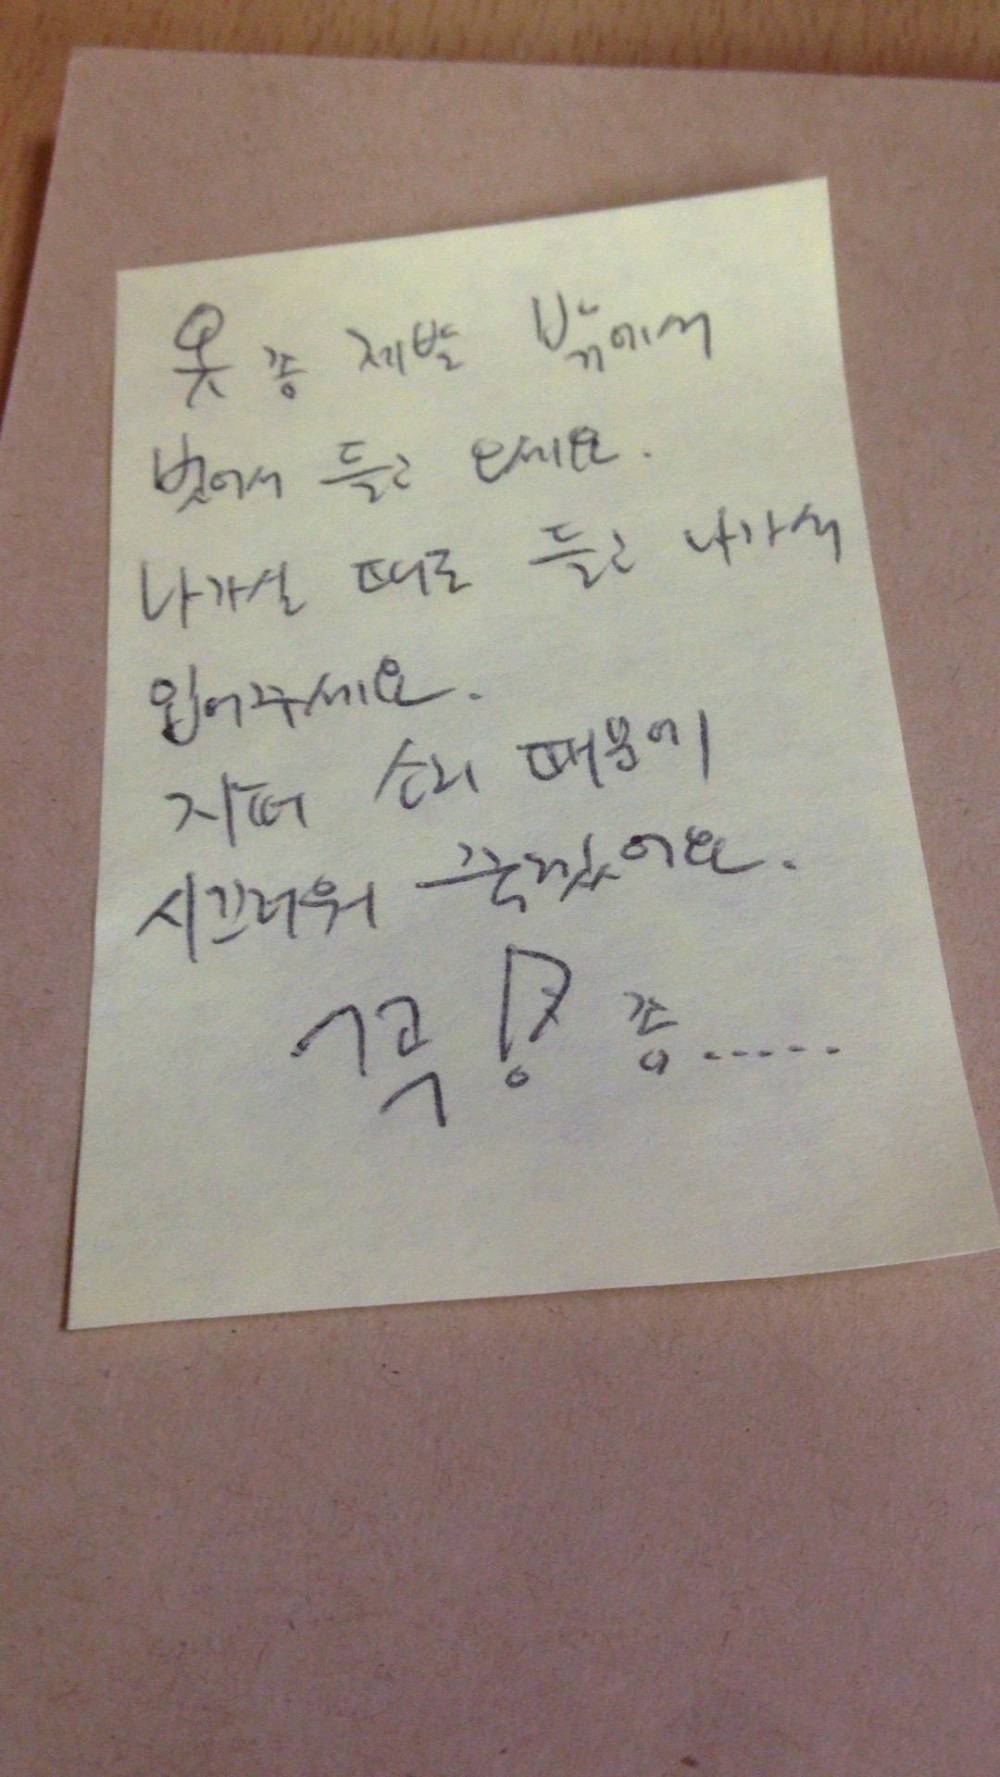 옷 좀 제발 밖에서
벗어서 들고 오세요.
나가실 때도 들고 나가서
입어주세요.
자퍼 소리 때문에
시끄러워 죽겠어요.
좀.....